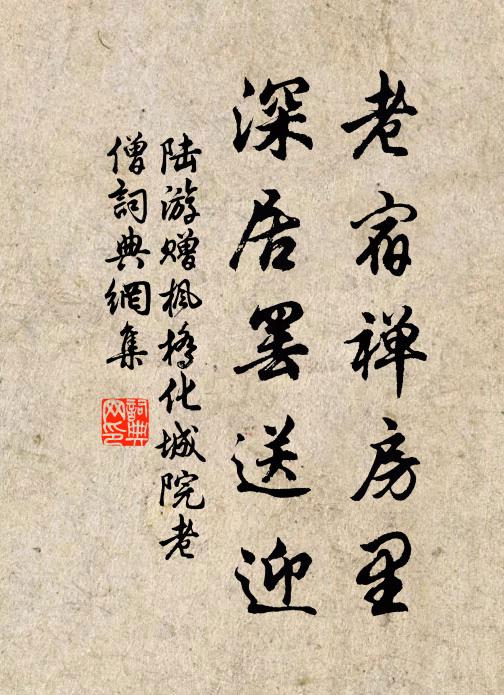 老宿禅房里
深居罢送迎
陆游赠枫橋化城院老
僧詞典網集
詞典网印